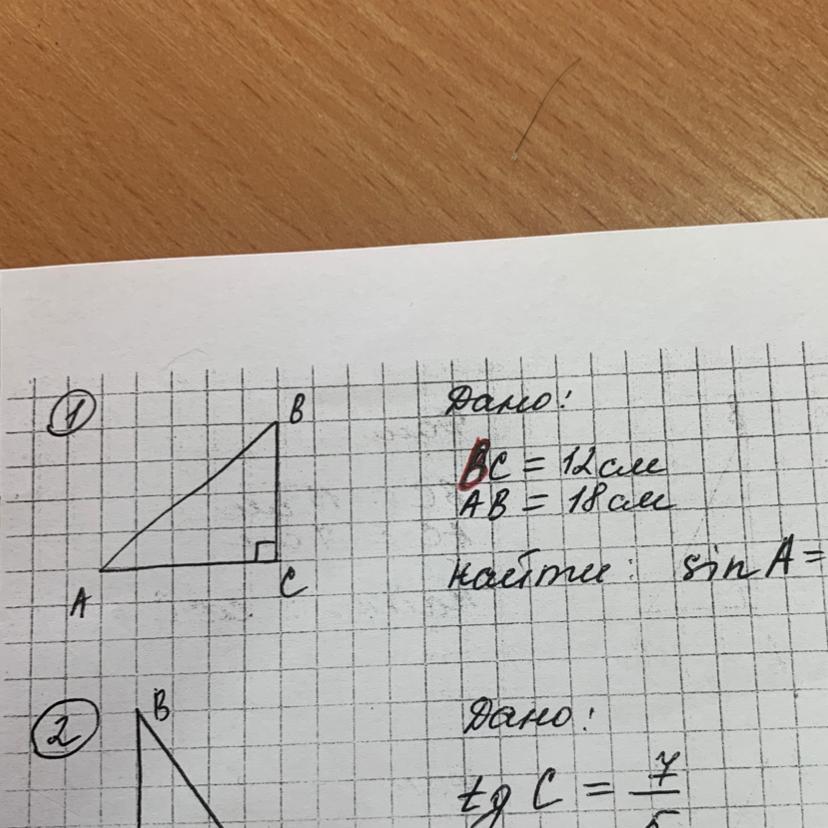 1
B
Дано:
BC = 12 см
AB = 18 см
A
C
найти: sin A =
2
B
Дано:
tg C = 7